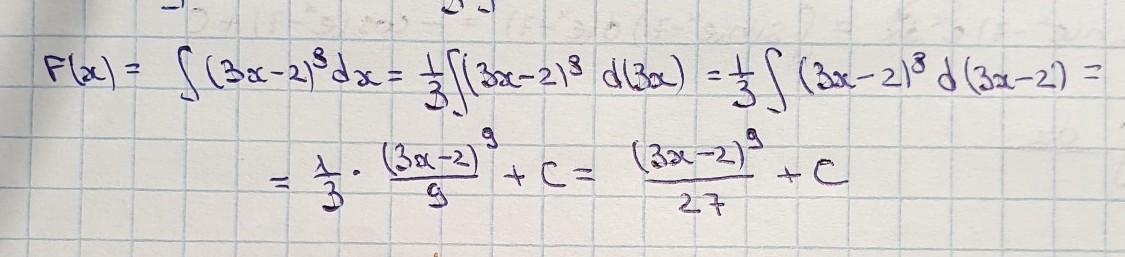 F(x) = ∫(3x-2)⁸dx = 1/3 ∫(3x-2)⁸ d(3x) = 1/3 ∫ (3x-2)⁸ d(3x-2) =
= 1/3 · (3x-2)⁹/9 + C = (3x-2)⁹/27 + C